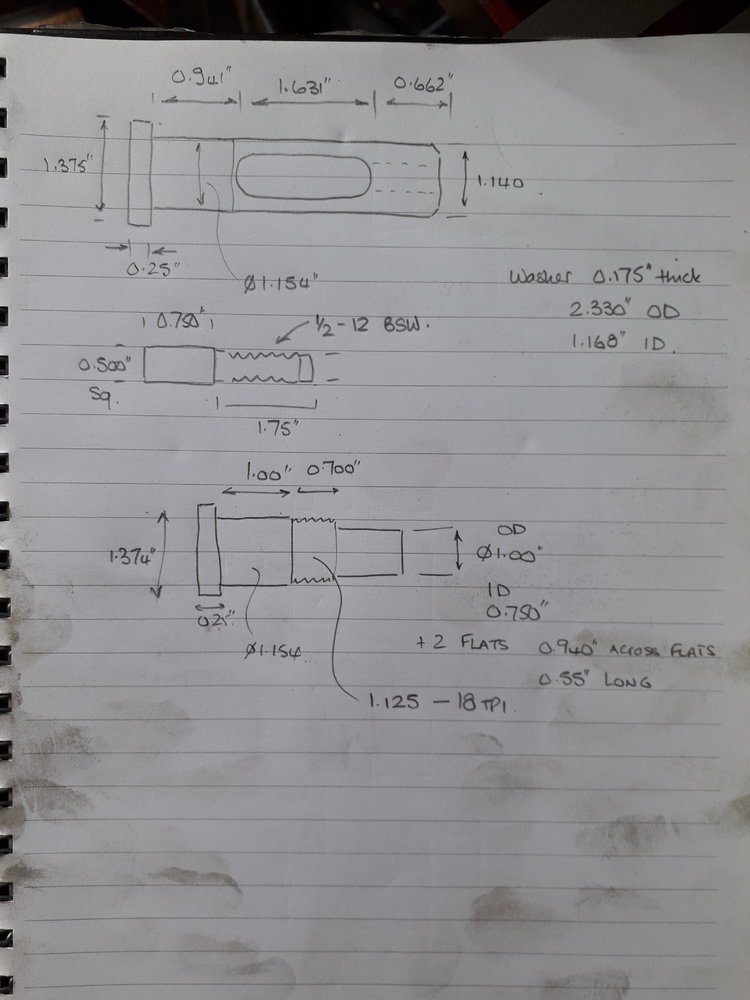 0.941" 1.631" 0.662"
1.375"
1.140
0.25"
Ø1.154"
Washer 0.175" thick
2.330" OD
1.168" ID.
0.750"
1/2-12 BSW.
0.500"
Sq.
1.75"
1.00" 0.700"
1.374"
OD
Ø1.00"
ID
0.750"
0.25"
Ø1.154
+2 FLATS 0.940" ACROSS FLATS
0.55" LONG
1.125 - 18 TPI.